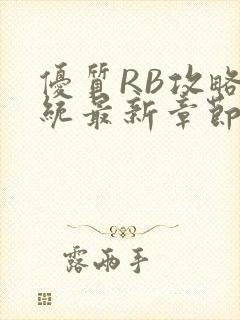 優質RB攻略
統最新章節
露兩手